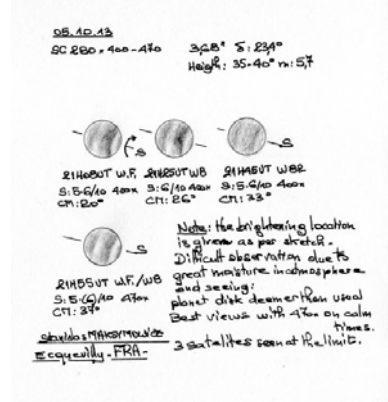 05.10.13
SC 280 x 400-470
3,68" δ: 23,4°
Heigh: 35-40° m: 5,7
S
S
S
21H08UT W.F.
S: 5-6/10 400x
CM: 20°
21H25UT WB
S: 6/10 400x
CM: 26°
21H45UT W82
S: 5-6/10 400x
CM: 33°
S
21H55UT W.F./WB
S: 5-(6)/10 470x
CM: 37°
Note: the brightening location
is given as per sketch.
Difficult observation due to
great moisture in admosphere
and seeing:
planet disk deemer than usual
Best views with 470x on calm
times.
3 satelites seen at the limit.
Stanislas MAKSYMOWICZ
Ecquevilly - FRA -